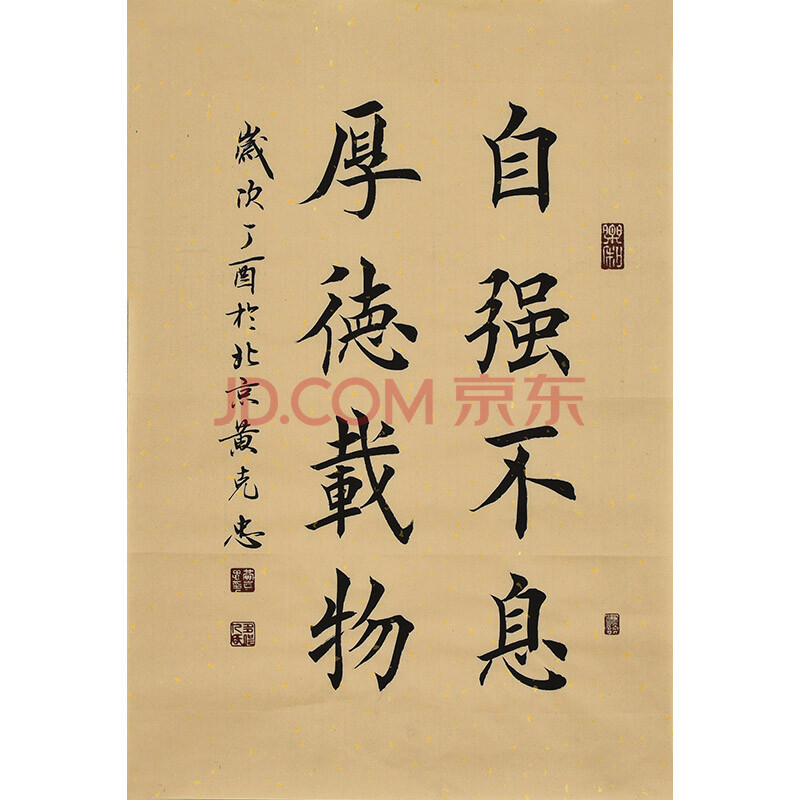 自强不息
厚德載物
歲次丁酉於北京黄克忠
JD.COM 京东